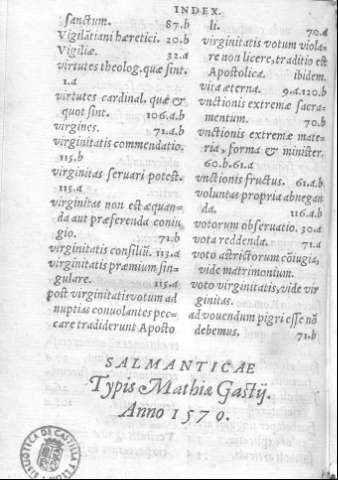 INDEX.
sanctum. 87.b
Vigilãtiani hæretici. 20.b
Vigiliæ. 32.a
virtutes theolog. quæ sint.
1.a
virtutes cardinal. quæ &
quot sint. 106.a.b
virgines. 71.a.b
virginitatis commendatio.
115.b
virginitas seruari potest.
115.a
virginitas non est æquan-
da aut præferenda coniu
gio. 71.b
virginitatis consiliũ. 113.a
virginitatis præmium sin-
gulare. 115.a
post virginitatis votum ad
nuptias conuolantes pec-
care tradiderunt Aposto
li. 70.a
virginitatis votum viola-
re non licere, traditio est
Apostolica. ibidem.
vita æterna. 9.a.120.b
vnctionis extremæ sacra-
mentum. 70.b
vnctionis extremæ mate-
ria, forma & minister.
60.b.61.a
vnctionis fructus. 61.a.b.
voluntas propria abnegan
da. 116.a.b
votorum obseruatio. 30.a
vota reddenda. 71.a
voto astrictorum cõiugia,
vide matrimonium.
voto virginitatis, vide vir
ginitas.
ad vouendum pigri esse nõ
debemus. 71.b
SALMANTICAE
Typis Mathiæ Gastij.
Anno 1570.
BIBLIOTECA DE CASTILLA